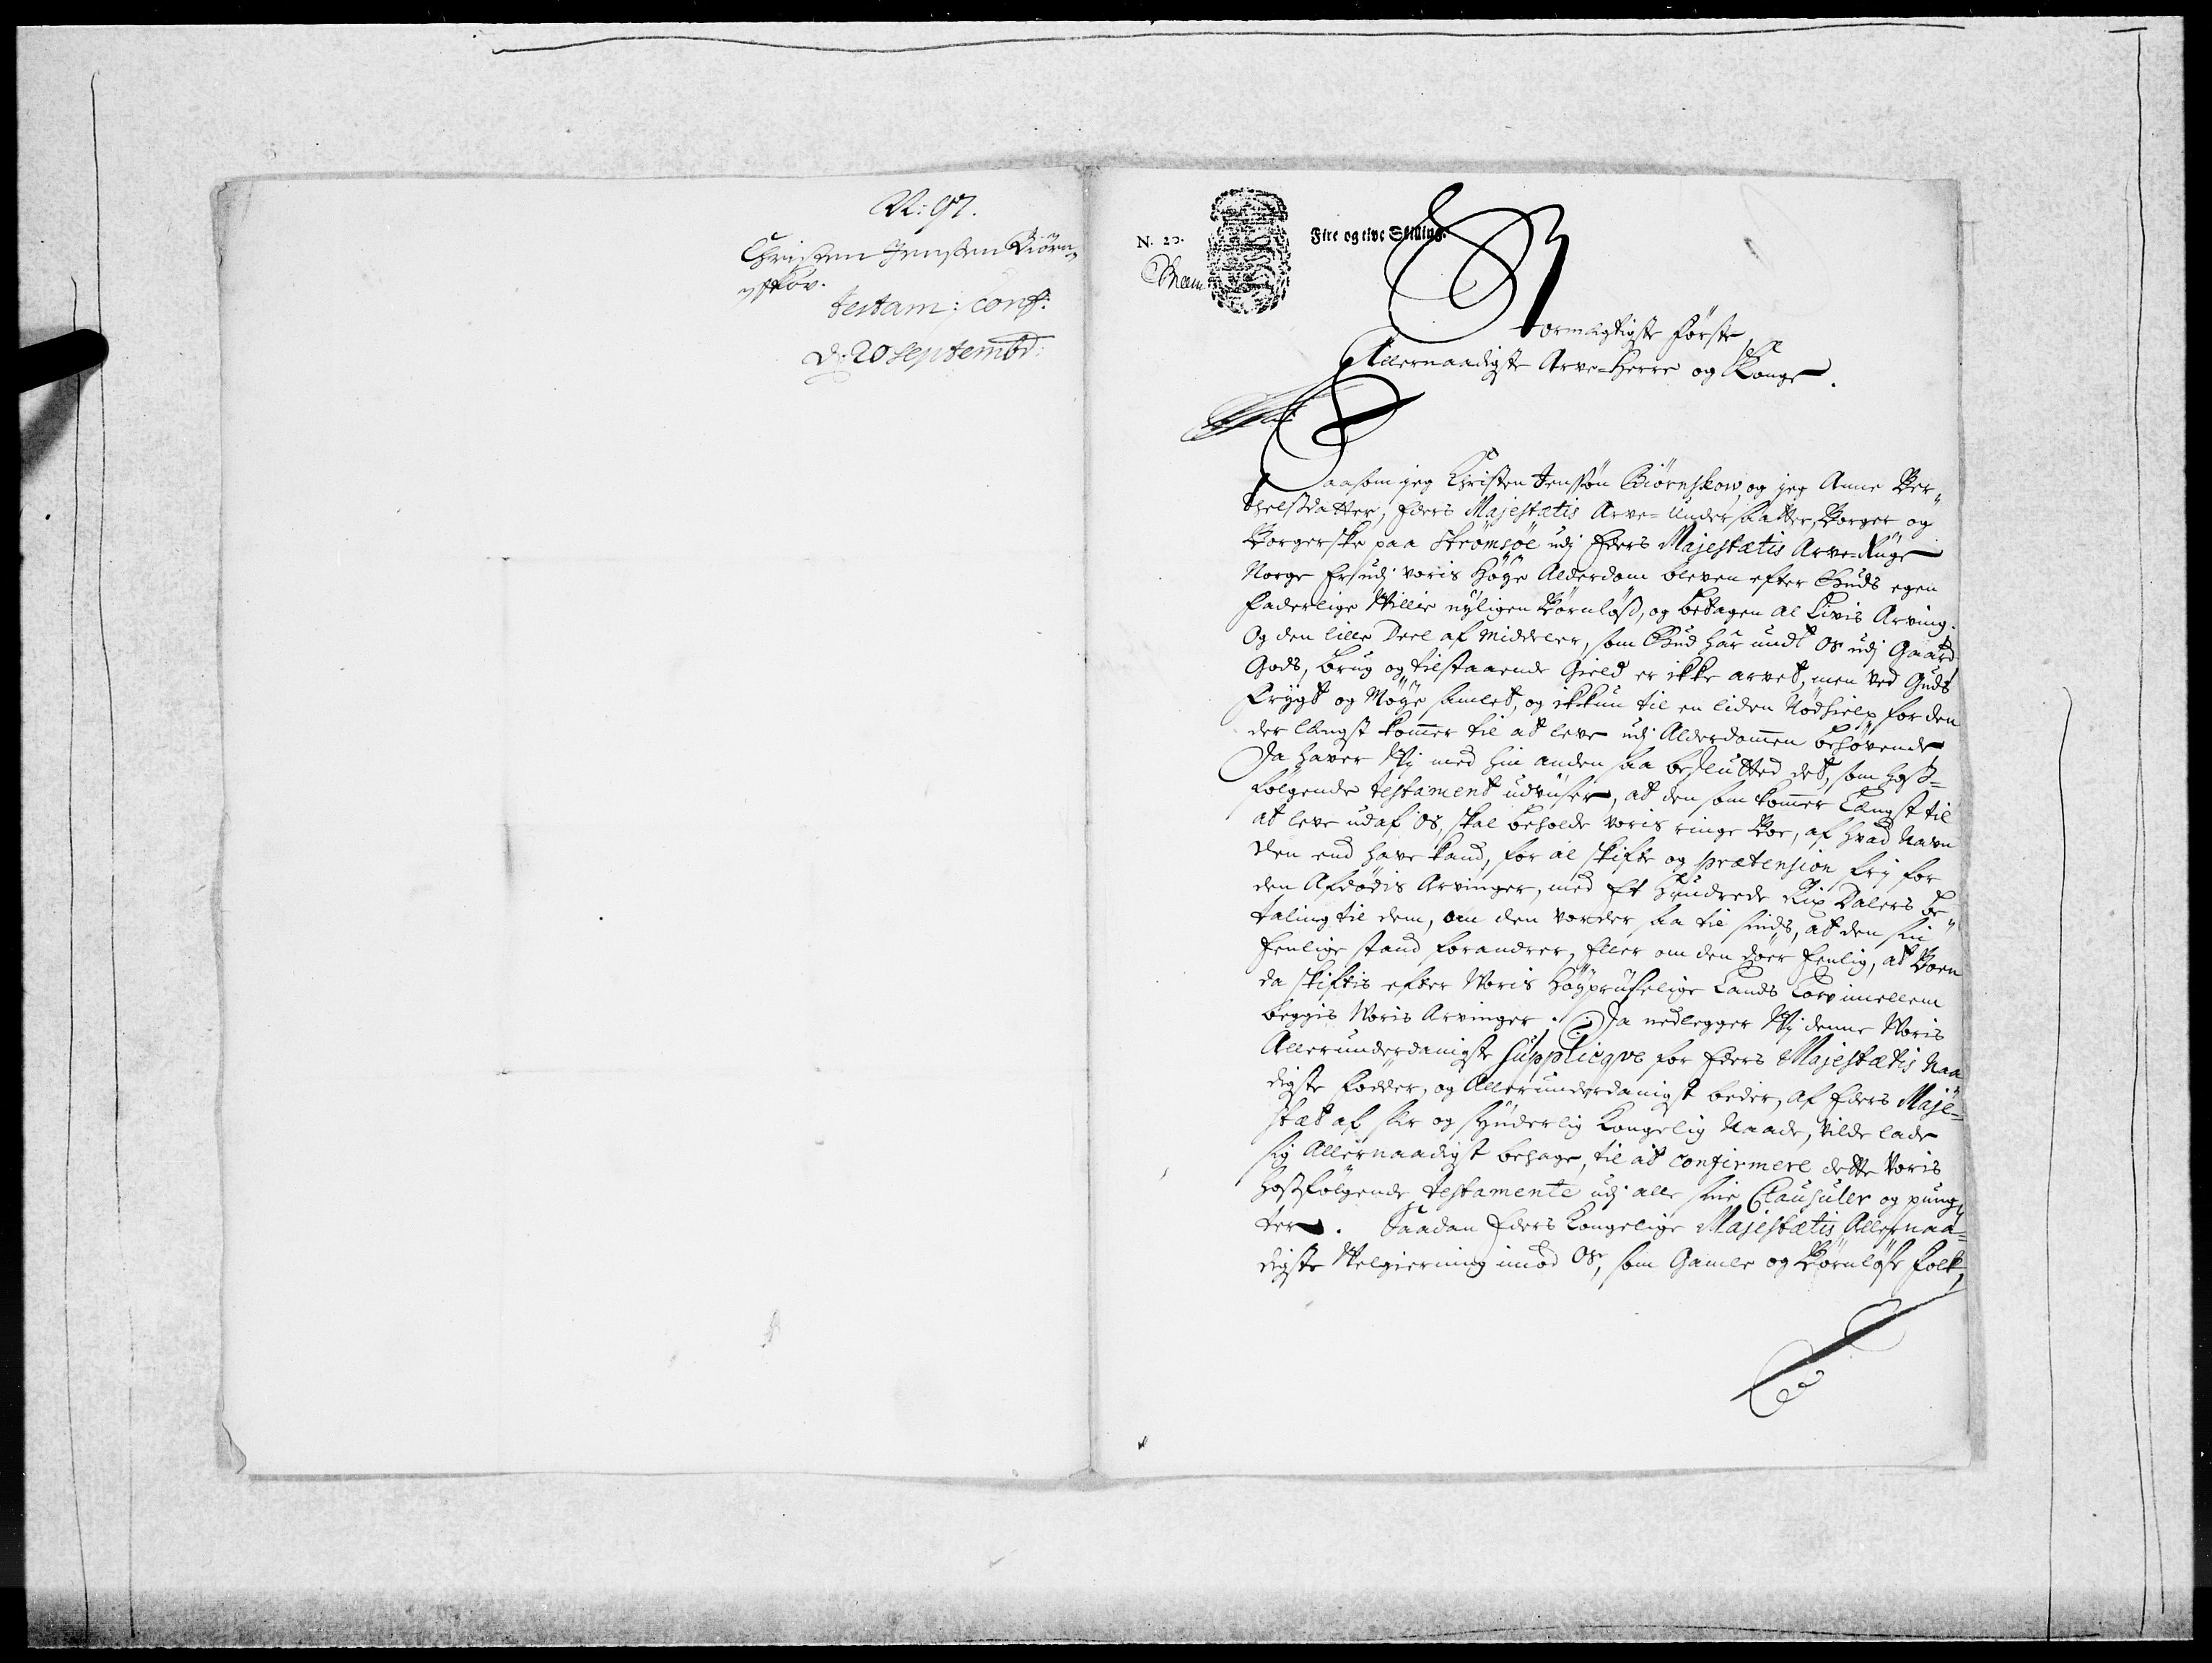 N: 97.
Christen Jensen Biørn,,
,,skov.
testam: conf:
d: 20 septembr:
N. 20.
Fire og tive Skilling.
Stormægtigste Første
Allernaadigste Arve-Herre og Konge.
Saasom jeg Christen Jenssøn Biørnskow, og jeg Anne Ber,,
thelsdatter, Eders Majestætis Arve-Undersaatter, Borger og
Borgerske paa Strømsøe udj Eders Majestætis Arve-Rige
Norge Er udj voris Høye Alderdom bleven efter Guds egen
faderlige Villie nyligen Børnløs, og betagen al Livis Arving.
Og den lille Deel af Middeler, som Gud har undt os udj Gaard
Gods, brug og tilstaaende Gield er ikke arvet, men ved Guds
Frygt og Møye samlet, og ikkun til en liden Nødhielp for den
der længst kommer til at leve udj Alderdommen behøvende
Da haver Vj med hin anden saa beslutted det, som hoss-
følgende testament udviiser, at den som kommer Længst til
at leve udaf os, skal beholde voris ringe Boe, af hvad Navn
den end have kand, for al skifte og prætension frj for
den Afdødis Arvinger, med Et Hundrede Rix Dalers be,,
taling til dem, om den vorder saa til sinds, at den sin
Eenlige stand forandrer, Eller om den døer Eenlig, at Boen
da skiftis efter Voris Høyprüselige Lands Lov imellem
begges Voris Arvinger. Da nedlegger Vj denne Voris
Allerunderdanigste Supplicqve for Eders Majestætis Naa,,
digste fødder, og Allerunderdanigst beder, at Eders Maje-
stæt af sær og synderlig Kongelig Naade, vilde lade
sig Allernaadigst behage, til at confirmere dette Voris
hossfølgende testamente udj alle sine Clausuler og pung,,
ter. Saadan Eders Kongelige Majestætis Allernaa-
digste Velgierning imod Os, som Gamle og Børnløse folk,